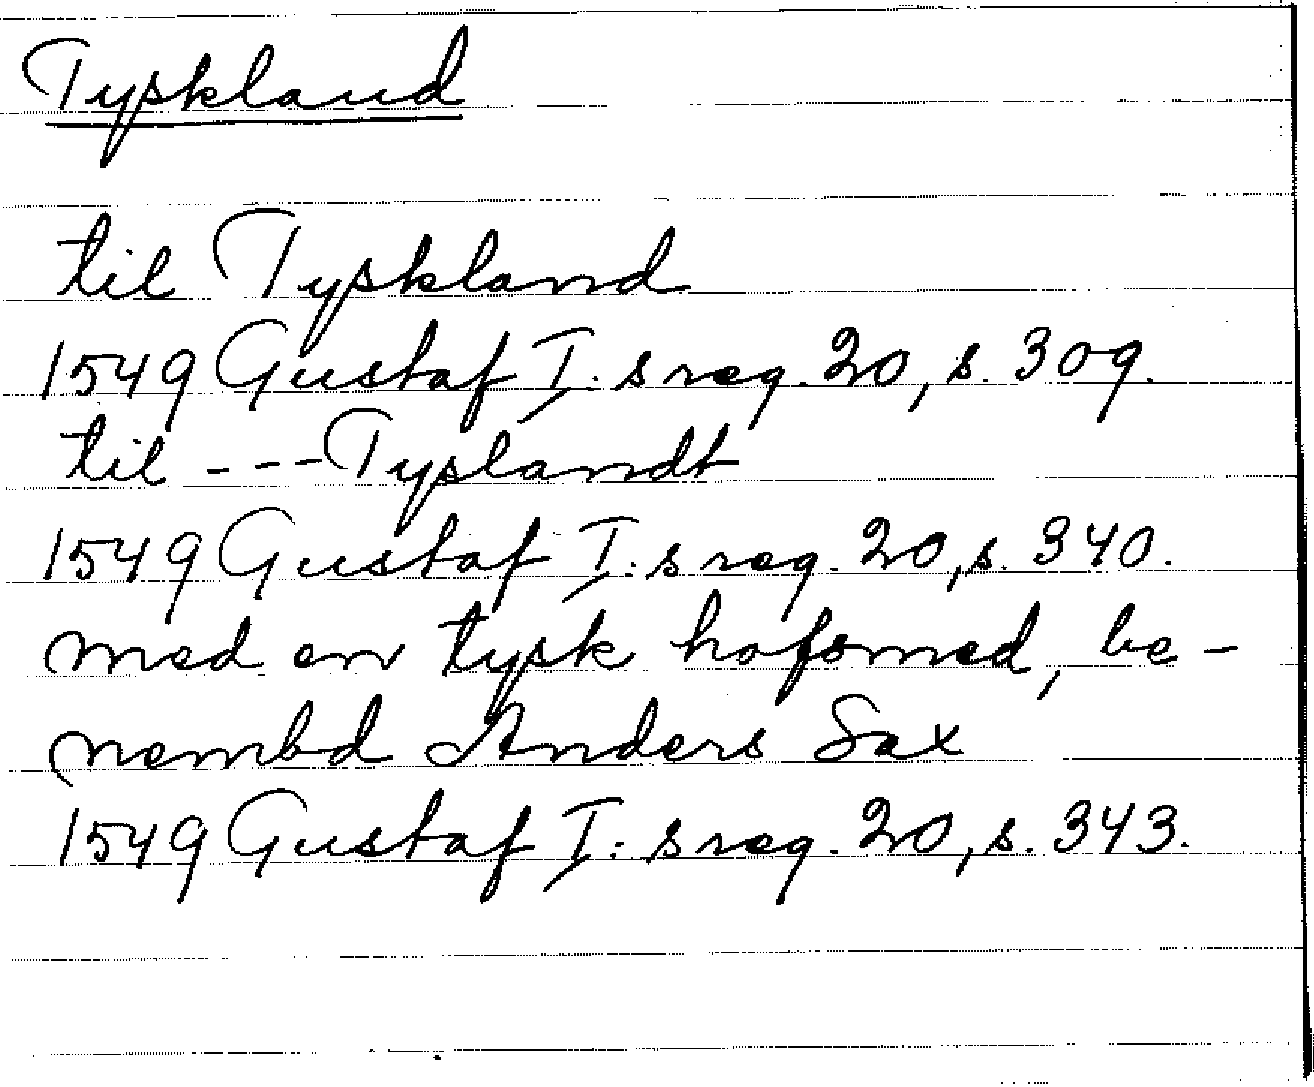 Tyskland
til Tyskland
1549 Gustaf I:s reg. 20, s. 309.
til ---Tyslandt
1549 Gustaf I:s reg. 20, s. 340.
med en tysk hofsmed, be-
nembd Anders Sax
1549 Gustaf I:s reg. 20, s. 343.